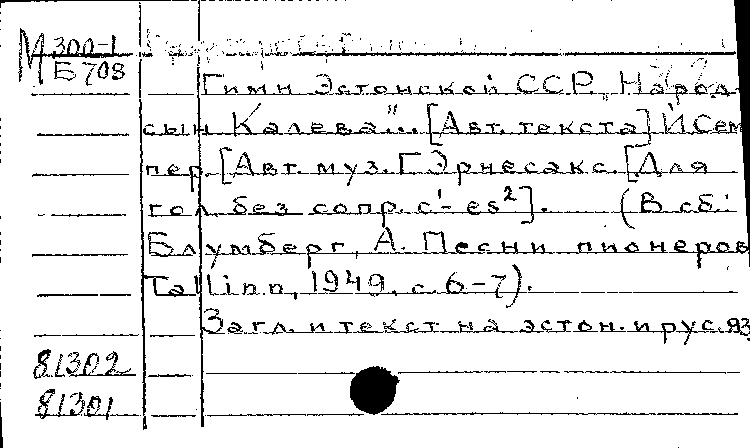 М 300-1
Б 708
Гимн Эстонской ССР. „Народ-
сын Калева"... [Авт. текста] И Сем
пер. [Авт. муз. Г Эрнесакс. [Для
гол. без сопр. c¹- es²]. (В сб.:
Блумберг, А. Песни пионеров
Tallinn, 1949. с. 6-7).
Загл. и текст на эстон. и рус. яз
81302
81301